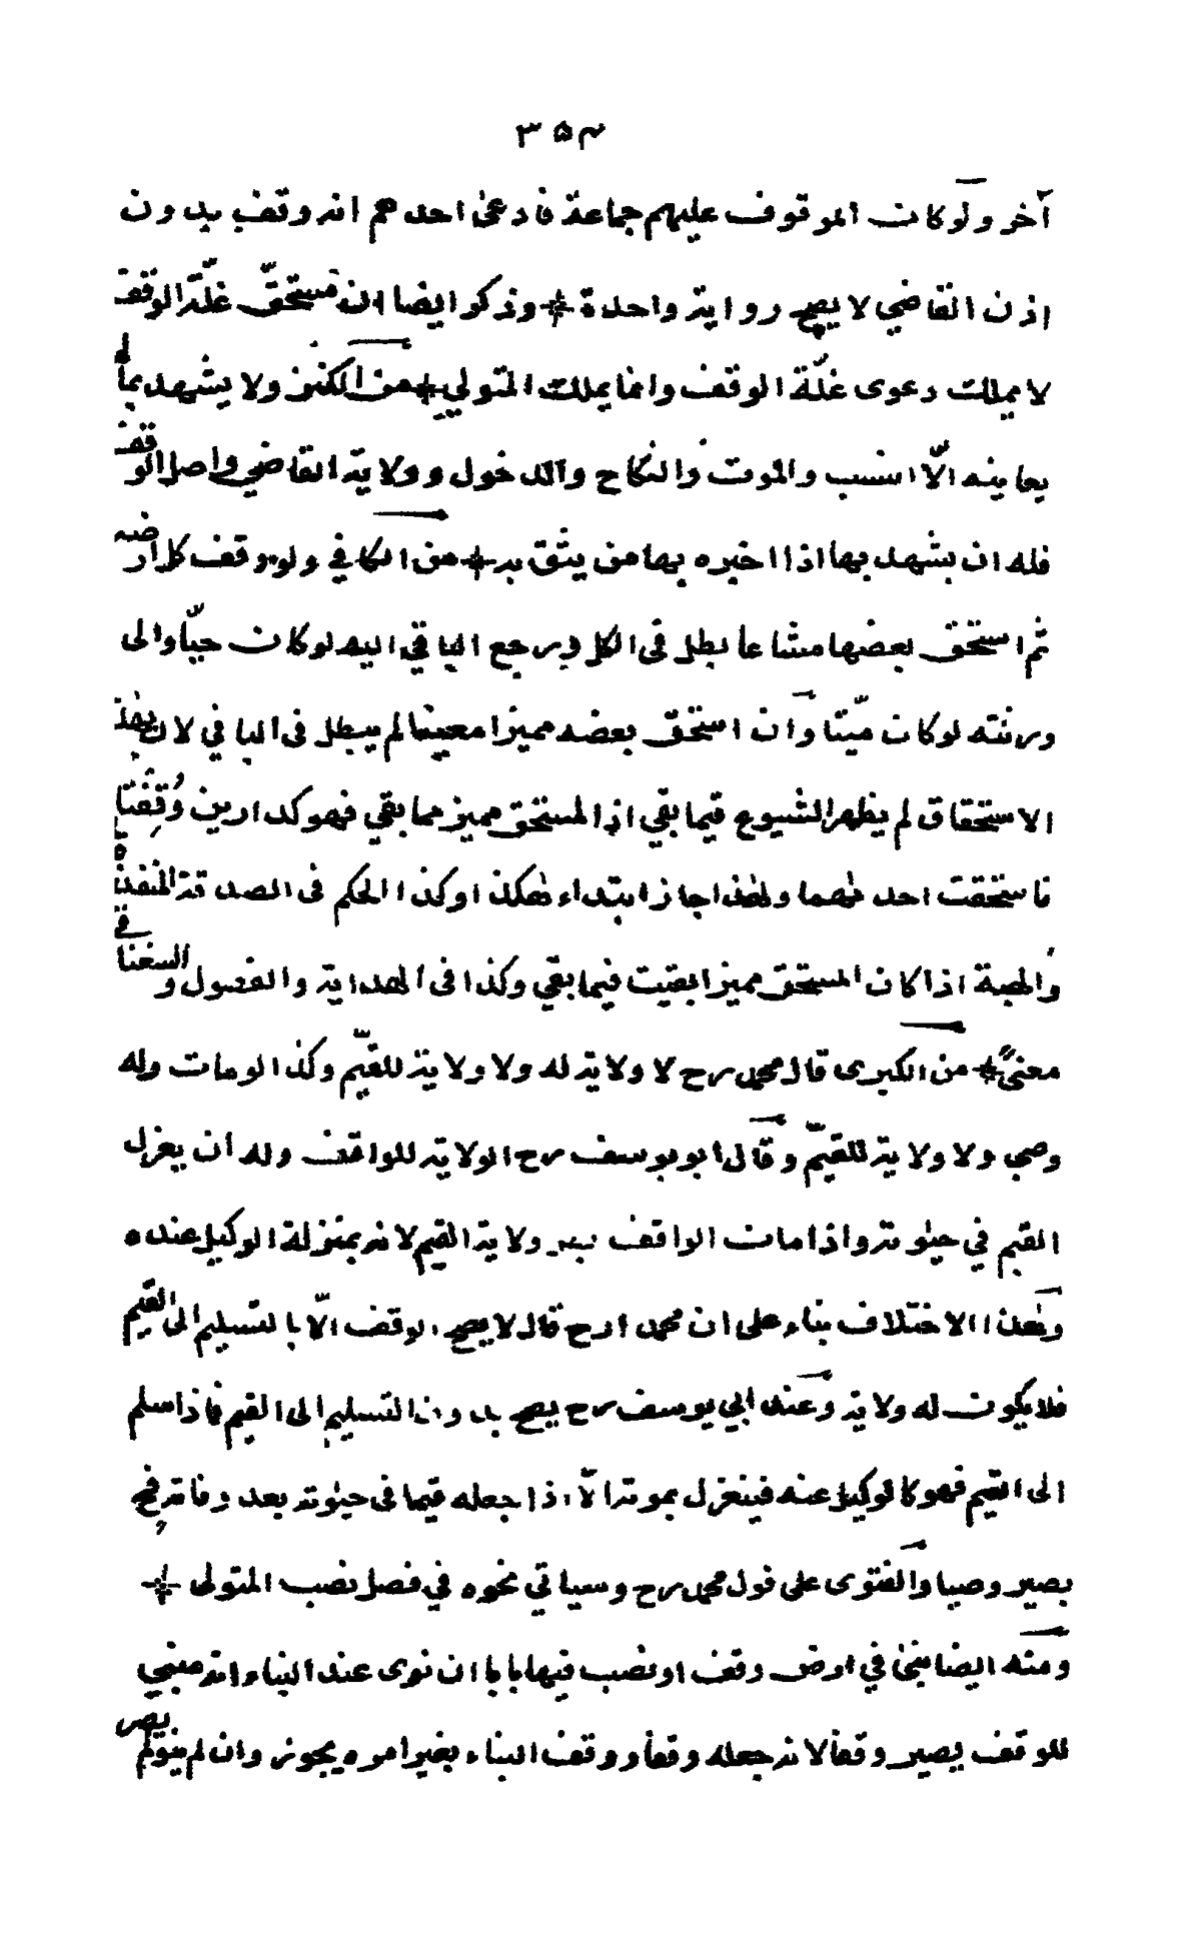 ٣٥٤
آخر ولو كان الموقوف عليهم جماعة فادعى احدهم انه وقف بدون
اذن القاضي لا يصح رواية واحدة * وذكر ايضا ان مستحقّ غلّة الوقف
لا يملك دعوى غلّة الوقف وانما يملك المتولي * من الكنز ولا يشهد بما لم
يعاينه الّا النسب والموت والنكاح والدخول وولاية القاضي واصل الوقف
فله ان يشهد بها اذا اخبره بها من يثق به * من الكافي ولو وقف كل ارضه
ثم استحق بعضها مشاعا بطل في الكل ويرجع الباقي اليه لو كان حيّا والى
ورثته لو كان ميّتا وان استحق بعضه مميزا معينا لم يبطل في الباقي لان بهذا
الاستحقاق لم يظهر الشيوع فيما بقي اذ المستحق مميز مما بقي فهو كدارين وُقِفَتا
فاستحقت احدٰهما ولهذا جاز ابتداء هٰكذا وكذا الحكم في الصدقة المنفذة
والهبة اذا كان المستحق مميزا بقيت فيما بقي وكذا في الهداية والفصول و السغناقي
معنىً * من الكبرى قال محمد رح لا ولاية له ولا ولاية للقيّم وكذا لو مات وله
وصي ولا ولاية للقيّم وقال ابو يوسف رح الولاية للواقف وله ان يعزل
القيم في حيٰوته واذا مات الواقف ولاية القيم لانه بمنزلة الوكيل عنده
وهٰذا الاختلاف بناء على ان محمدا رح قال لا يصح الوقف الّا بالتسليم الى القيم
فلا يكون له ولاية وعند ابي يوسف رح يصح بدون التسليم الى القيم فاذا سلم
الى القيم فهو كالوكيل عنه فينعزل بموته الّا اذا جعله قيما في حيٰوته بعد وفاته فح
يصير وصيا والفتوى على قول محمد رح وسياتي نحوه في فصل نصب المتولى *
ومنه ايضا بنىٰ في ارض وقف او نصب فيها بابا ان نوى عند البناء انه مبني
للوقف يصير وقفا لانه جعله وقفا ووقف البناء بغير امره يجوز وان لم ينو لم يصر